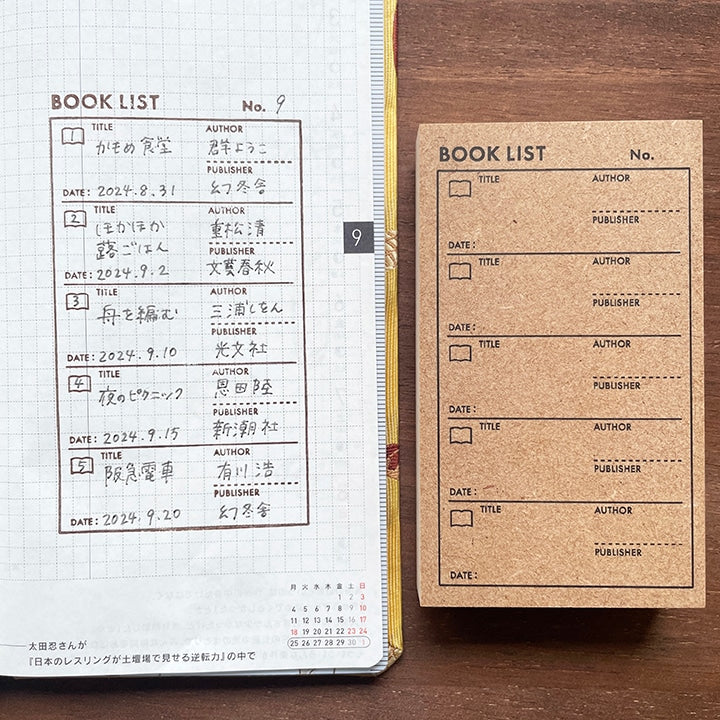 BOOK LIST No. 9
1 TITLE AUTHOR
かもめ食堂 群ようこ
PUBLISHER
DATE: 2024.8.31 幻冬舎
2 TITLE AUTHOR
ほかほか 重松清
蕗ごはん PUBLISHER
DATE: 2024.9.2 文藝春秋
3 TITLE AUTHOR
舟を編む 三浦しをん
PUBLISHER
DATE: 2024.9.10 光文社
4 TITLE AUTHOR
夜のピクニック 恩田陸
PUBLISHER
DATE: 2024.9.15 新潮社
5 TITLE AUTHOR
阪急電車 有川浩
PUBLISHER
DATE: 2024.9.20 幻冬舎
9
月 火 水 木 金 土 日
1 2 3
4 5 6 7 8 9 10
11 12 13 14 15 16 17
18 19 20 21 22 23 24
25 26 27 28 29 30 1
太田忍さんが
『日本のレスリングが土壇場で見せる逆転力』の中で
BOOK LIST No.
TITLE AUTHOR
PUBLISHER
DATE:
TITLE AUTHOR
PUBLISHER
DATE:
TITLE AUTHOR
PUBLISHER
DATE:
TITLE AUTHOR
PUBLISHER
DATE:
TITLE AUTHOR
PUBLISHER
DATE: